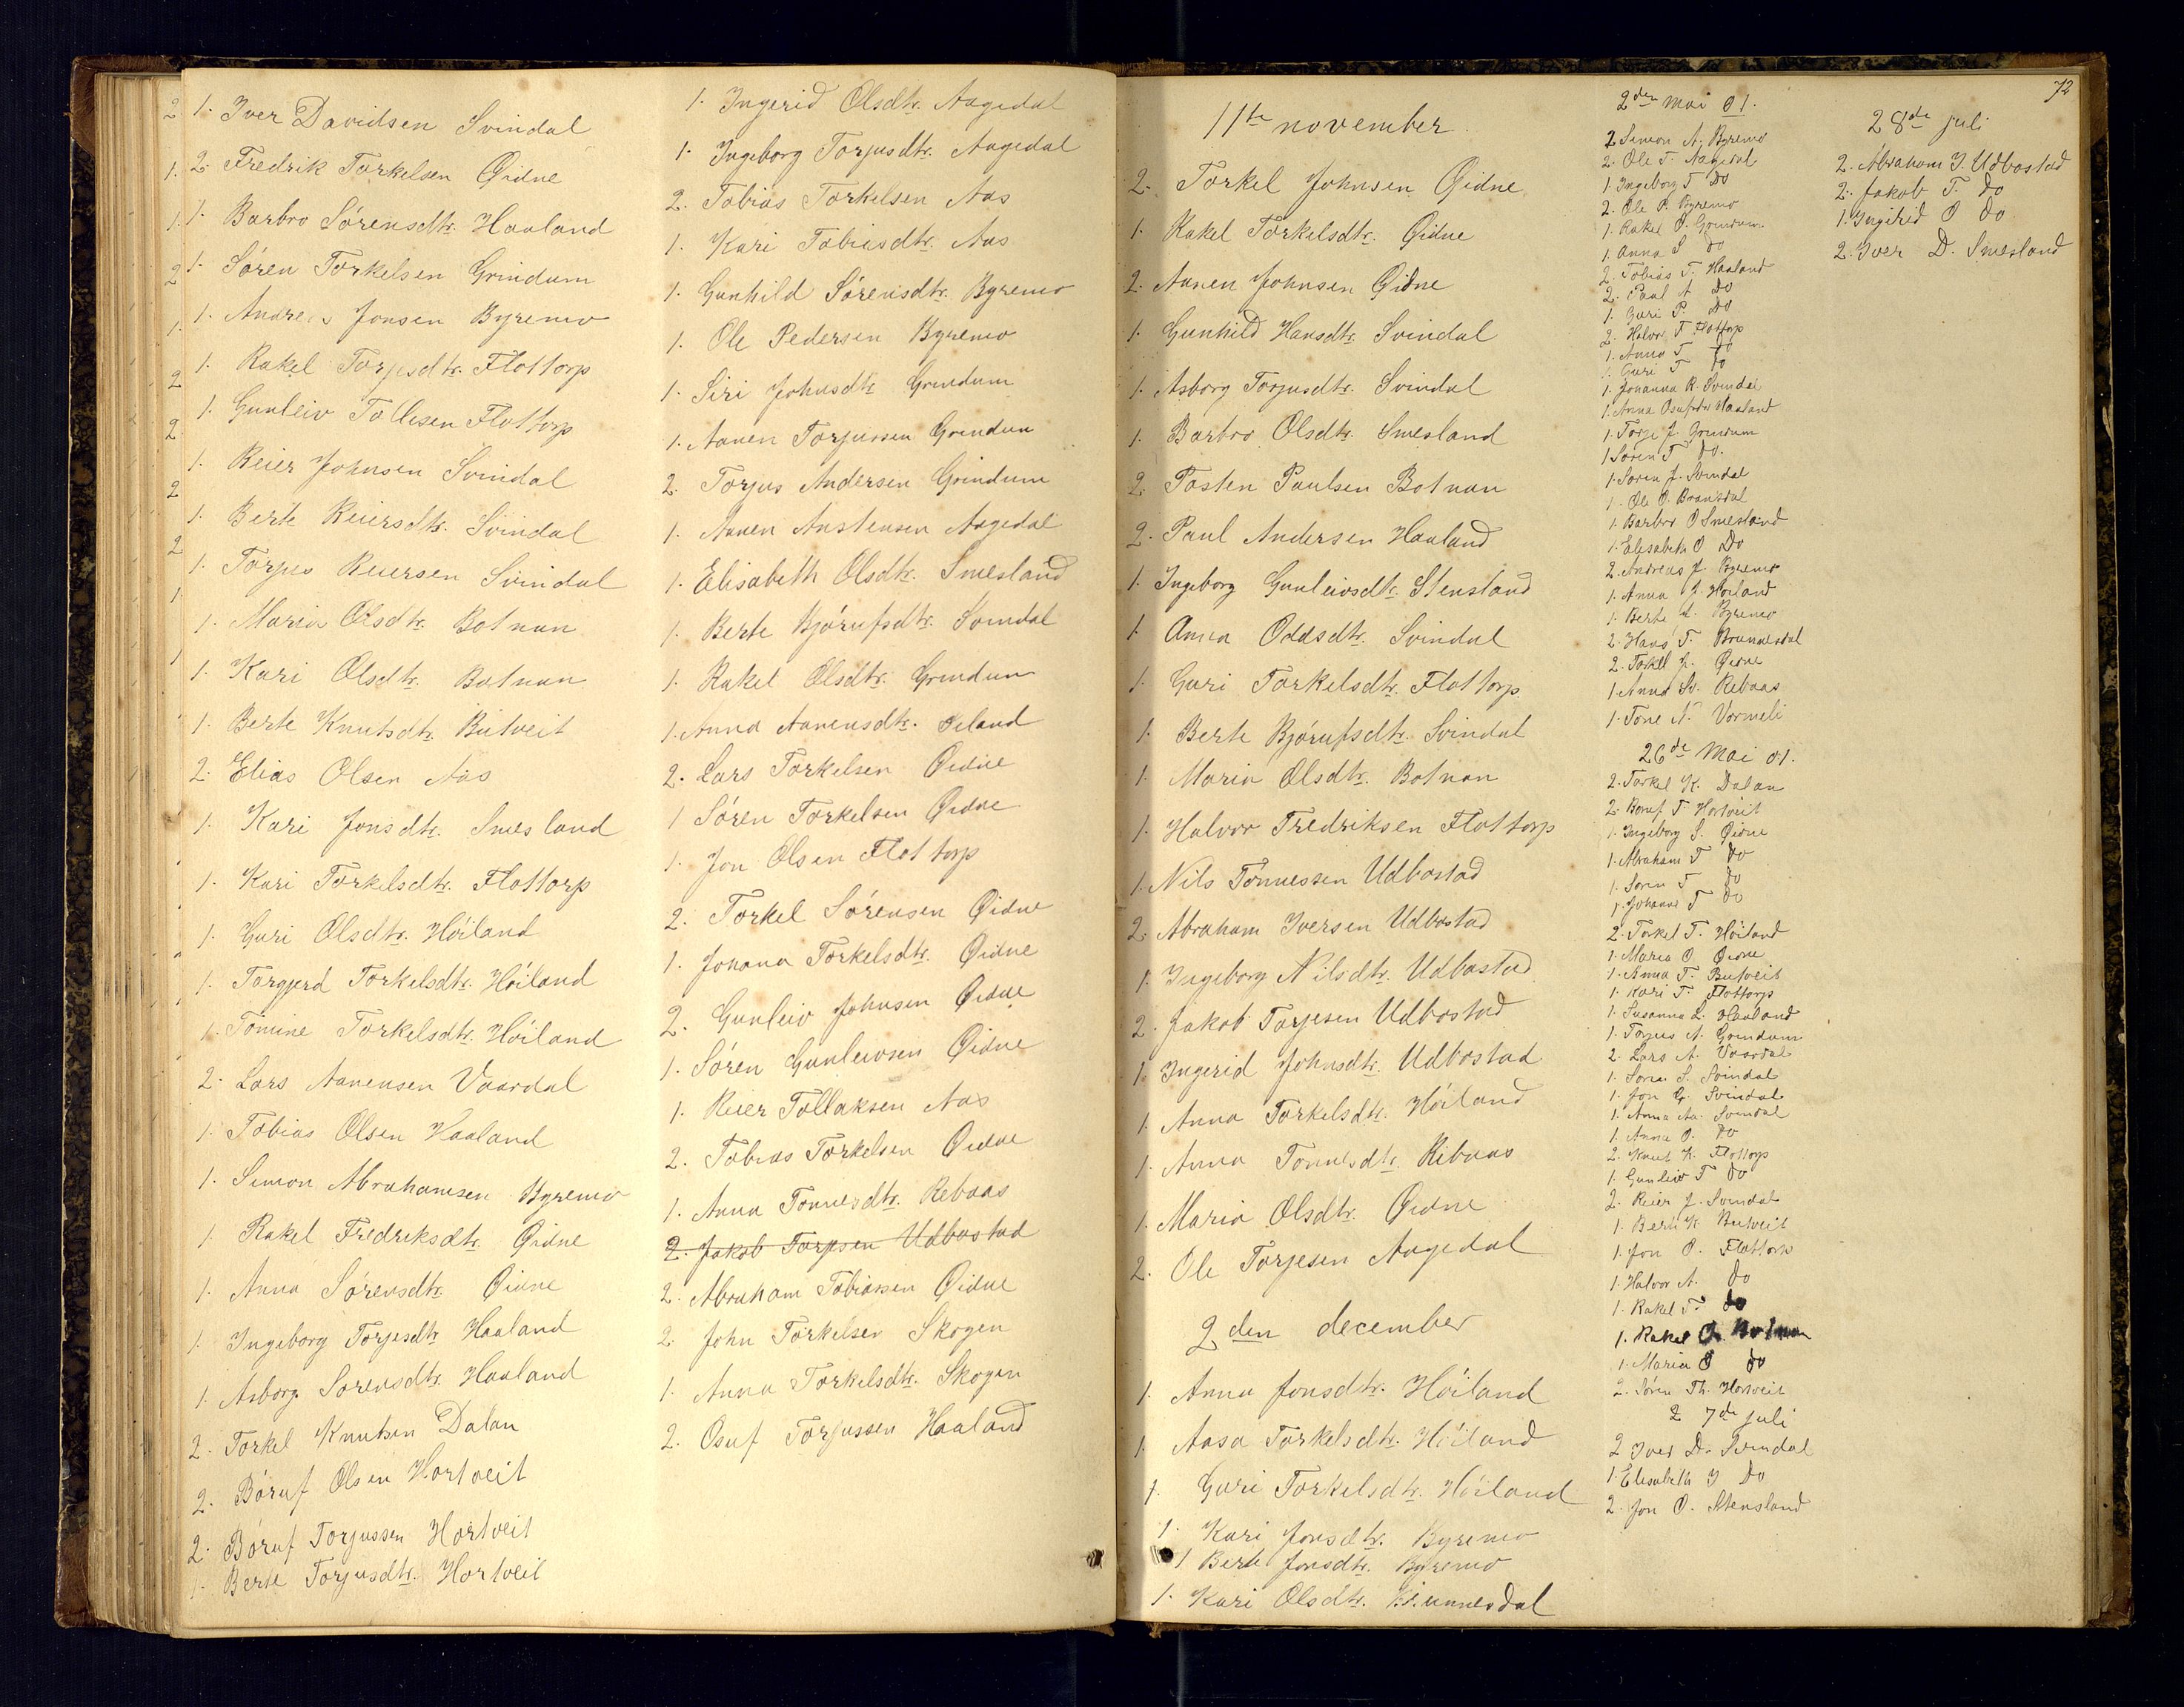 1. Iver Davidsen Svindal
2. Fredrik Torkelsen Øidne
1. Barbro Sørensdtr. Haaland
1. Søren Torkelsen Grindum
1. Andreas Jonsen Byremo
1. Rakel Torjesdtr. Flottorp
1. Gunleiv Tollesen Flottorp
1. Reier Johnsen Svindal
1. Berte Reiersdtr. Svindal
1. Torjus Reiersen Svindal
1. Maria Olsdtr. Botnan
1. Kari Olsdtr. Botnan
1. Berte Knutsdtr. Butveit
2. Elias Olsen Aas
1. Kari Jonsdtr. Smesland
1. Kari Torkelsdtr. Flottorp
1. Guri Olsdtr. Høiland
1. Torgjerd Torkelsdtr. Høiland
1. Tomine Torkelsdtr. Høiland
2. Lars Aanensen Vaardal
1. Tobias Olsen Haaland
1. Simon Abrahamsen Byremo
1. Rakel Fredriksdtr. Øidne
1. Anna Sørensdtr. Øidne
1. Ingeborg Torjesdtr. Haaland
1. Asborg Sørensdtr. Haaland
2. Torkel Knutsen Dalan
2. Børuf Olsen Hortveit
2. Børuf Torjussen Hortveit
1. Berte Torjusdtr. Hortveit
1. Ingerid Olsdtr. Aagedal
1. Ingeborg Torjusdtr. Aagedal
2. Tobias Torkelsen Aas
1. Kari Tobiasdtr. Aas
1. Gunhild Sørensdtr. Byremo
1. Ole Pedersen Byremo
1. Siri Johnsdtr. Grindum
1. Aanen Torjussen Grindum
2. Torjus Andersen Grindum
1. Aanen Anstensen Aagedal
1. Elisabeth Olsdtr. Smesland
1. Berte Bjørufsdtr. Svindal
1. Rakel Olsdtr. Grindum
1. Anna Aanensdtr.
2. Lars Torkelsen Øidne
1 Søren Torkelsen Øidne
1. Jon Olsen Flottorp
2. Torkel Sørensen Øidne
1. Johana Torkelsdtr. Øidne
2. Gunleiv Johnsen Øidne
1. Søren Gunleivsen Øidne
1. Reier Tollaksen Aas
2. Tobias Torkelsen Øidne
1. Anna Tønnesdtr. Rebaas
2. Jakob Torjesen Udbostad
2. Abraham Tobiassen Øidne
2. John Torkelsen Skogen
1. Anna Torkelsdtr. Skogen
2. Osuf Torjussen Haaland
72
11te november
2. Torkel Johnsen Øidne
1. Rakel Torkelsdtr. Øidne
2. Aanen Johnsen Øidne
1. Gunhild Hansdtr. Svindal
1. Asborg Torjusdtr. Svindal
1. Barbro Olsdtr. Smesland
2. Tosten Paulsen Botnan
2. Paul Andersen Haaland
1. Ingeborg Gunleivsdtr. Stensland
1. Anna Oddsdtr. Svindal
1. Guri Torkelsdtr. Flottorp
1. Berte Bjørufsdtr. Svindal
1. Maria Olsdtr. Botnan
1. Halvor Fredriksen Flottorp
1. Nils Tønnessen Udbostad
2. Abraham Iversen Udbostad
1. Ingeborg Nilsdtr. Udbostad
2. Jakob Torjesen Udbostad
1. Ingerid Johnsdtr. Udbostad
1. Anna Torkelsdtr. Høiland
1. Anna Tønnesdtr. Ribaas
1. Maria Olsdtr. Øidne
2. Ole Torjesen Aagedal
2den december
1. Anna Jonsdtr. Høiland
1. Aasa Torkelsdtr. Høiland
1. Guri Torkelsdtr. Høiland
1. Kari Jonsdtr. Byremo
1 Berte Jonsdtr. Byremo
1. Kari Olsdtr.
2den mai 01.
2 Simon A. Byremo
2. Ole T. Aagedal
1. Ingeborg T do
2. Ole P. Byremo
1. Rakel O. Grindum
1. Anna S do
2. Tobias T. Haaland
2. Paul A do
1. Guri P. do
2. Halvor T Flottorp
1. Anna T do
1. Guri T do
1. Johanna R. Svindal
1. Anna Osufsdtr Haaland
1. Torje J. Grindum
1 Søren T do.
1. Søren J. Svindal
1. Ole O.
1. Barbro O Smesland
1. Elisabeth O do
2. Andreas J. Byremo
1. Anna J. Høiland
1. Berte J. Byremo
2. Hans T.
2. Torkel J. Øidne
1. Anna Rebaas
1. Tone N. Vormeli
26de Mai 01.
2. Torkel K. Dalan
2. Børuf T Hortveit
1. Ingeborg S. Øidne
1. Abraham T do
1. Søren T do
1. Johanne T do
2. Torkel T. Høiland
1. Maria O Øidne
1. Anna T. Butveit
1. Kari T. Flottorp
1. Susanna L. Haaland
1. Torjus A. Grindum
2. Lars A. Vaardal
1. Søren S. Svindal
1. Jon G. Svindal
1. Anna Aa. Svindal
1. Anna O. do
2. Knut K. Flottorp
1. Gunleiv T do
2. Reier J. Svindal
1. Berte K. Butveit
1. Jon O. Flottorp
1. Halvor A. do
1. Rakel T. do
1. Rakel O. Botnan
1. Maria O do
2. Søren Th. Hortveit
2 7de juli
2 Iver D. Svindal
1. Elisabeth I do
2. Jon O. Stensland
28de juli
2. Abraham I. Udbostad
2. Jakob T. do
1. Ingerid O do
2. Iver D. Smesland